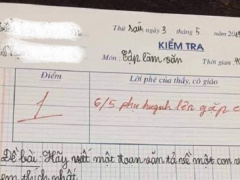 Thứ sáu ngày 3 tháng 5 năm 201
KIỂM TRA
Môn: Tập làm văn Thời gian:
Điểm Lời phê của thầy, cô giáo
1 6/5 phụ huynh lên gặp
Đề bài: Hãy viết một đoạn văn tả về một con
em thích nhất